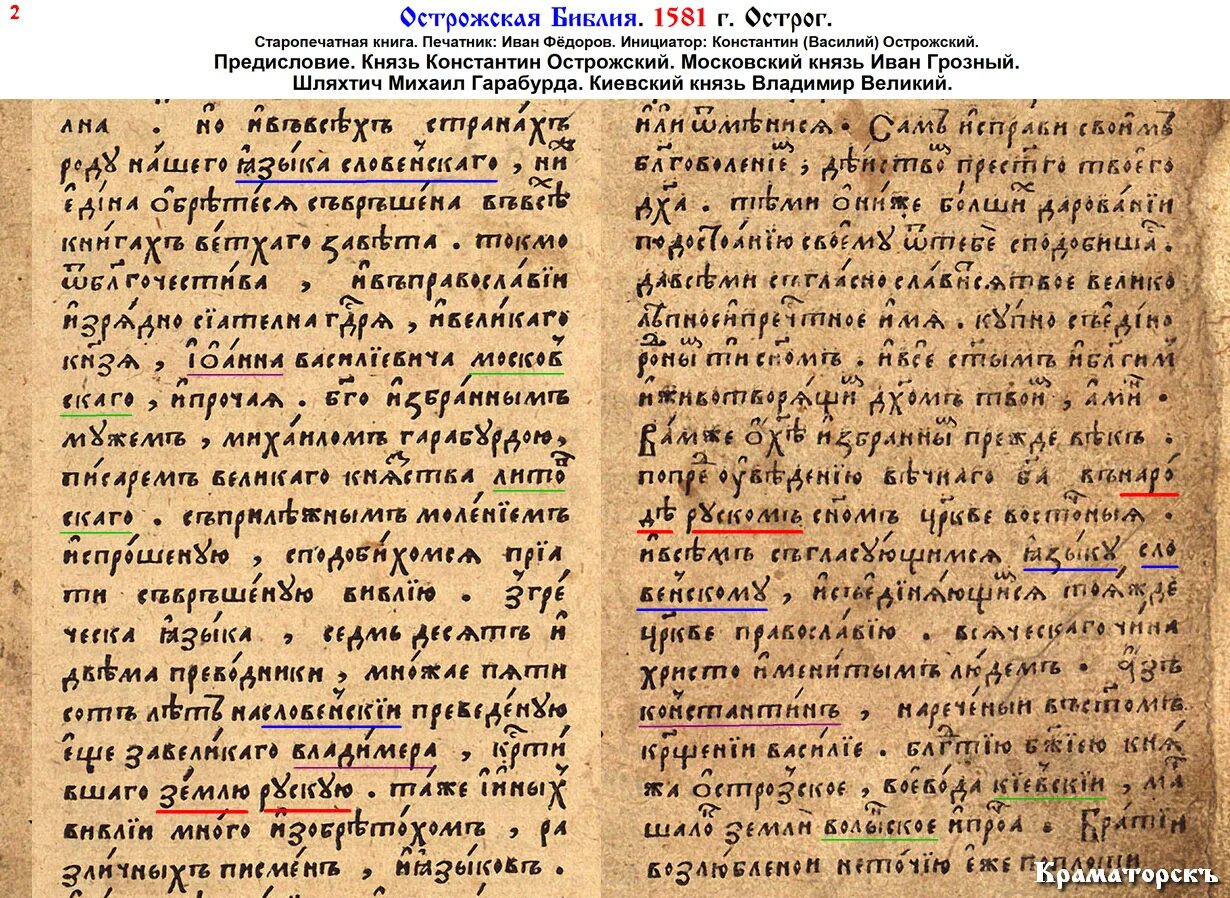 2
Острожская Библия. 1581 г. Острог.
Старопечатная книга. Печатник: Иван Фёдоров. Инициатор: Константин (Василий) Острожский.
Предисловие. Князь Константин Острожский. Московский князь Иван Грозный.
Шляхтич Михаил Гарабурда. Киевский князь Владимир Великий.
лна . но ивъвсѣхъ страна́хъ
роду на́шего ꙗзы́ка слове́нскаго , ни
еди́на обрѣте́сѧ съврꙿше́на въвсѣ
кни́гахъ ве́тхаго завѣ́та . токмо
ѿблг҃очести́ва , ивъправосла́вїи
изрѧ́дно сїа́телна гдⷭ҇рѧ , ивели́каго
кнѧ҃зѧ , Іѡа́нна васи́лїевича москов
скаго , ипро́чаѧ . бг҃о избра́ннымъ
му́жемъ , миха́иломъ гарабу́рдою,
пи́саремъ вели́каго кнѧ́зства лито
скаго . съприлѣ́жнымъ моле́нїемъ
испро́шеную , сподоби́хомсѧ прїѧ
ти съврꙿше́ную ви́влїю . з̾гре́
ческа ꙗзы́ка , се́дмь десѧ́тъ и
двѣма прево́дники , мно́жае пѧти
сотъ лѣтъ насло́венскїи преведе́ную
е́ще завели́каго влади́мера , крⷭ҇ти́
вшаго зе́млю ру́скую . та́же ины́хъ
ви́влїи мно́го изобрѣто́хомъ , ра
зли́чныхъ писме́нъ , иꙗзы́ковъ .
или ѿмѣни́сѧ . Самъ испра́ви свои́мъ
блг҃оволе́нїемъ ; дѣ́йствомъ прест҃го твоего́
дх҃а . тѣ́ми они́же бо́лшихъ дарова́нїи
подостоа́нїю своему́ ѿтебѐ сподо́бишасѧ .
давсѣ́ми съгла́сно сла́витсѧ твое велико
лѣ́пное ипречⷭ҇тное и́мѧ . ку́пно съеди́но
ро́дныⷨ ти сн҃омъ . ивсе ст҃ы́мъ ибл҃ги́м
иживотворѧ́щимъ дх҃омъ твои́мъ , ами́нь .
Ва́мже избра́нныⷨ пре́жде вѣ́къ .
попреⷣ увѣ́денїю вѣ́чнаго бг҃а въ наро́
дѣ ру́скомъ сн҃омъ црк҃ве восто́чныѧ .
ивсѣ́мъ съгласу́ющимсѧ ꙗзы́ку сло
ве́нскому , исъединѧ́ющимсѧ тоѧ́жде
црк҃ве правосла́вїю . всѧ́ческаго чи́на
христо имени́тымъ лю́демъ . а́зъ
константи́нъ , нарече́ный въст҃омъ
крⷭ҇ще́нїи васи́лїе . блгⷣ҇тїю бж҃їею кнѧ
жа остро́зское , воево́да кїевскїи , ма
шалокъ землѝ волы́нское ипро́чаѧ . Бра́тїи
возлю́бленои нето́чїю е́же попло́ти
Краматорскъ